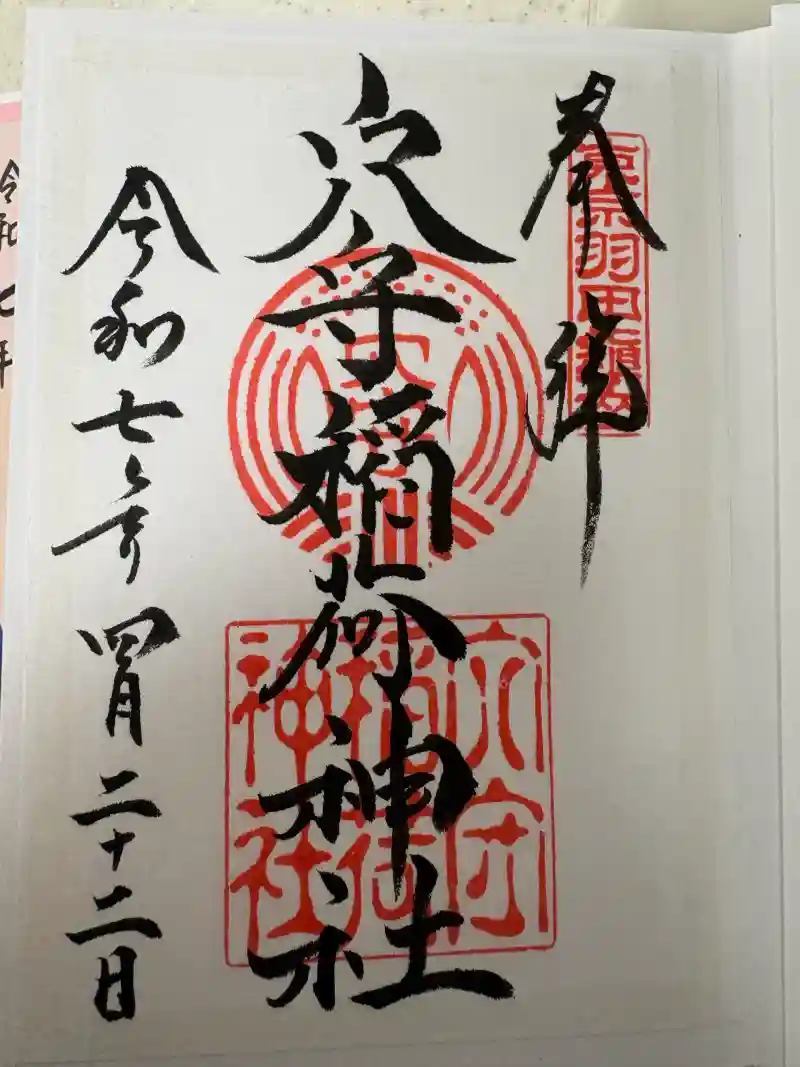 奉拝
東京羽田鎮座
穴守稲荷神社
穴守
稲荷
神社
令和七年四月二十二日
令和七年